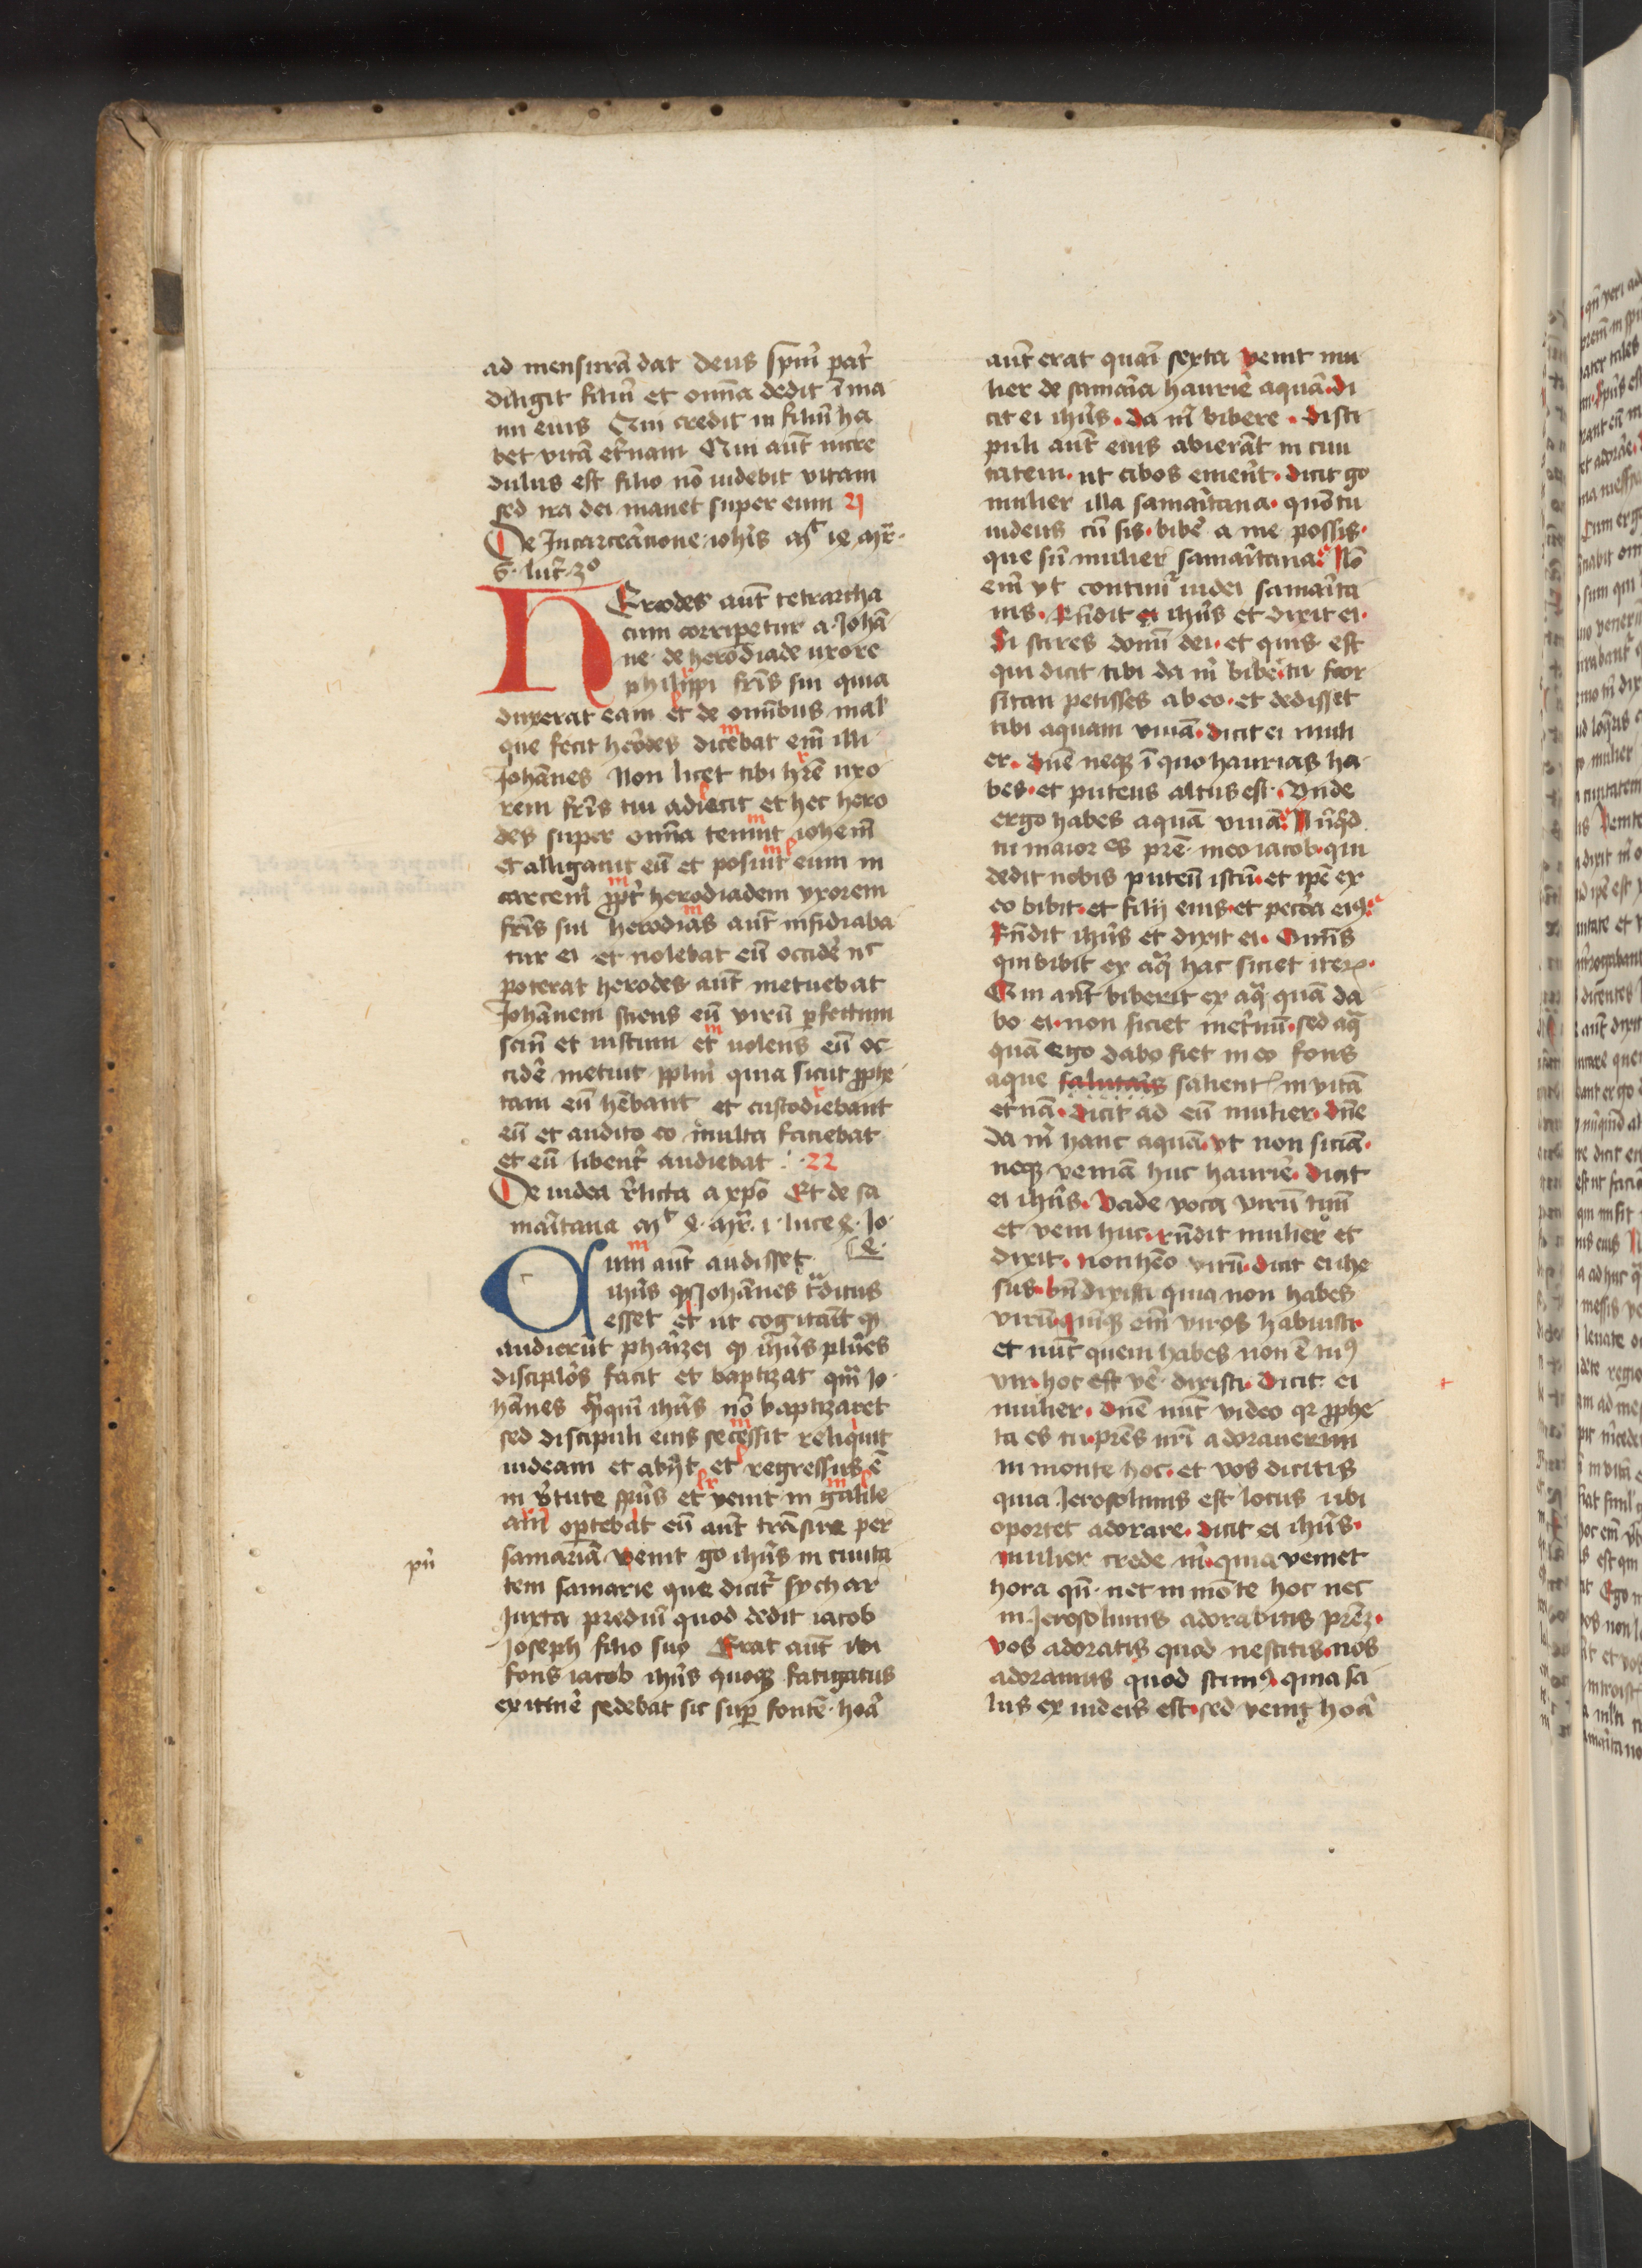 ad mensurā dat deus spm̄ pat̄
diligit filiū et om̄a dedit ī ma
nu eius Qui credit in filiū ha
bet vitā et̄nam Qui aūt incre
dulus est filio nō uidebit vitam
sed ira dei manet super eum 21
De Incarceac̄ione ioh̄is
6 luc̄ 3o
HErodes aūt tetrarcha
cum corripetur a Johā
ne de herodiade uxore
philippi fr̄is sui quia
duxerat eam et de om̄ibus mal
que fecit herodes dicebat em̄ illi
Johānes Non licet tibi hr̄e uxo
rem fr̄is tui adiecit et hec hero
des super om̄a tenuit iohem̄
et alligauit eū et posuit eum in
carcem̄ ꝓpt̄ herodiadem vxorem
fr̄is sui herodias aūt insidiaba
tur ei et uolebat eū occide᷑ nc̄
poterat herodes aūt metuebat
Johānem sciens eū virū ꝑfectum
scm̄ et iustum et uolens eū oc
cide᷑ metuit pplm̄ quia sicut ꝓphe
tam eū hēbant et custodiebant
eū et audito eo multa faciebat
et eū libent᷑ audiebat 22
De iudea r̄licta a xp̄o Et de sa
mar̄itana Luce Jo
Cum aūt audisset
ih̄us ꝙ Johānes t᷑ditus
esset et ut cogitāit ꝙ
audierūt phar̄izei ꝙ ih̄us plūes
discipłos facit et baptizat qm̄ Jo
hānes q̄̄qm̄ ih̄us nō baptizaret
sed discipuli eius secessit reliquit
iudeam et abijt et regressus ē
in v̄tute sp̄us et venit in galile
am̄ oportebat eū aūt trānsire per
samariā venit go ih̄us in ciuita
pn̄
tem samarie que dicit᷑ sychar
Juxta prediū quod dedit iacob
Joseph filio suo Erat aūt ibi
fons iacob ih̄us quoqꝫ fatigatus
ex itine᷑ sedebat sic suꝑ fontē hoā
aūt erat quāi sexta venit mu
lier de samar̄ia haurie᷑ aquā di
cit ei ih̄us Da m̄ bibere disci
puli aūt eius abierāt in ciui
tatem ut cibos emer̄ent dicit go
mulier illa samar̄itana quō tu
iudeus cū sis bibe᷑ a me possis
que sū mulier samar̄itana Nō
em̄ vt contūt᷑ iudei samar̄ita
nis Rn̄dit ei ih̄us et dixit ei
Si scires donū dei et quis est
qui dicit tibi da m̄ bibe᷑ tu foor
sitan petisses ab eo et dedisset
tibi aquam viuā dicit ei muli
er Dn̄e neqꝫ ī quo haurias ha
bes et puteus altus est Unde
ergo habes aquā viuā Nūq̄d
tu maior es pr̄e meo iacob qui
dedit nobis puteū istū et ip̄e ex
eo bibit et filij eius et peco᷑a eiꝰ
Rn̄dit ih̄us et dixit ei Om̄is
qui bibit ex aq̄ hac siciet iteꝝ
Qui aūt biberit ex aq̄ quā da
bo ei non siciet inet̄nū sed aq̄
quā ego dabo fiet in eo fons
aque salutaris salient̄ in vitā
et̄nā Dicit ad eū mulier dn̄e
da m̄ hanc aquā vt non siciā
neqꝫ veniā huc haurie᷑ Dicit
ei ih̄us Vade voca virū tuū
et veni huc rn̄dit mulier et
dixit non hēo virū dicit ei ihe
sus bn̄ dixisti quia non habes
virū quinqꝫ em̄ viros habuisti
et nūc quem habes non ē tuꝰ
vir hoc est ve᷑ dixisti Dicit ei
mulier dn̄e nūc video qꝛ ꝓphe
ta es tu pr̄es nr̄i adorauerunt
in monte hoc et vos dicitis
quia Jerosolimis est locus ubi
oportet adorare dicit ei ih̄us
mulier crede m̄ quia veniet
hora qn̄ nec in monte hoc nec
in Jerosolimis adorabitis prēꝫ
vos adoratis quod nescitis nos
adoramus quod scimꝰ quia sa
lus ex iudeis est sed venit hoā